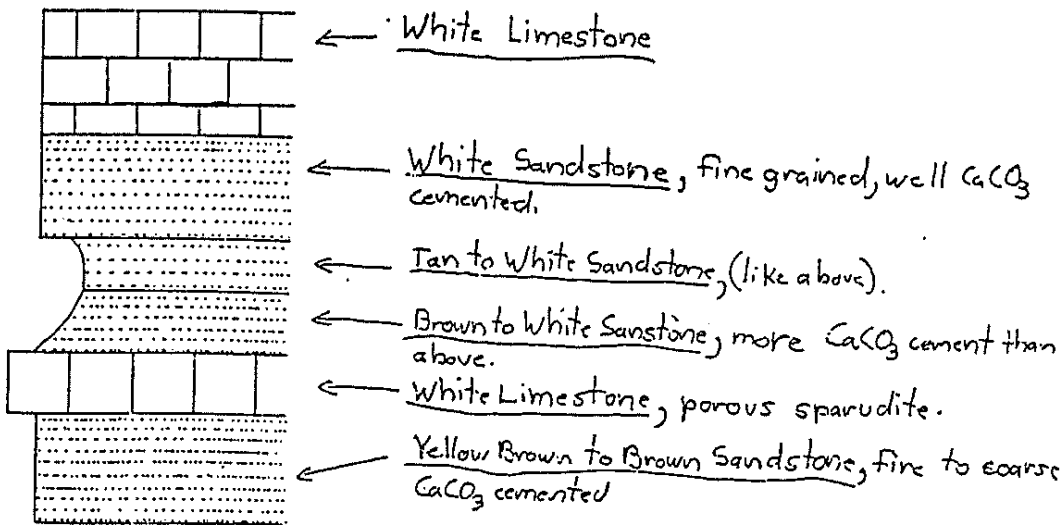 White Limestone
White Sandstone, fine grained, well CaCO₃
cemented.
Tan to White Sandstone, (like above).
Brown to White Sanstone, more CaCO₃ cement than
above.
White Limestone, porous sparudite.
Yellow Brown to Brown Sandstone, fine to coarse
CaCO₃ cemented